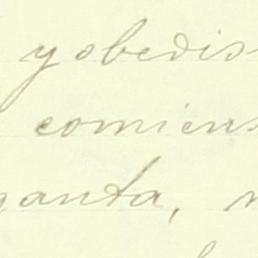 y obedis
comiens
ganta,